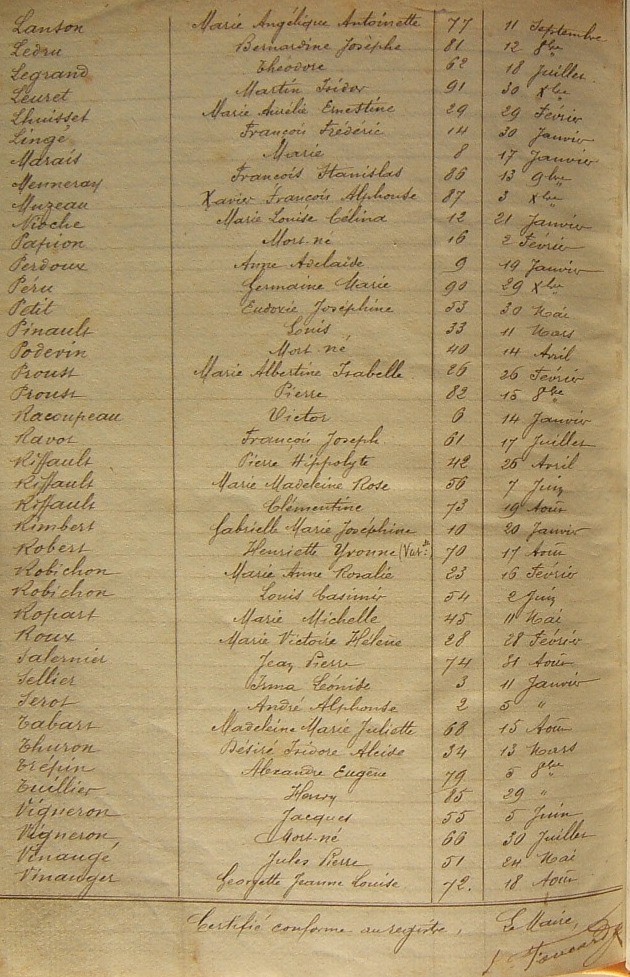 Lanson Marie Angélique Antoinette 77 11 Septembre
Ledru Bernardine Josèphe 81 12 8bre
Legrand Théodore 62 18 Juillet
Leuret Martin Isidor 91 30 Xbre
Lhuisset Marie Aurélie Ernestine 29 29 Février
Lingé François Frédéric 14 30 Janvier
Marais Marie 8 17 Janvier
Menneray François Stanislas 86 13 9bre
Muzeau Xavier François Alphonse 87 3 Xbre
Nioche Marie Louise Célina 12 21 Janvier
Papion Mort-né 16 2 Février
Perdoux Anne Adelaïde 9 19 Janvier
Péru Germaine Marie 90 29 Xbre
Petit Eudoxie Joséphine 53 30 Mai
Pinault Louis 33 11 Mars
Poderin Mort-né 40 14 Avril
Proust Marie Albertine Isabelle 26 26 Février
Proust Pierre 82 15 8bre
Racoupeau Victor 6 14 Janvier
Ravot François Joseph 61 17 Juillet
Riffault Pierre Hippolyte 42 25 Avril
Riffault Marie Madeleine Rose 56 7 Juin
Riffault Clémentine 73 19 Août
Rimbert Gabrielle Marie Joséphine 10 20 Janvier
Robert Henriette Yvonne 70 17 Août
Robichon Marie Anne Rosalie 23 16 Février
Robichon Louis Casimir 54 2 Juin
Ropart Marie Michelle 45 11 Mai
Roux Marie Victoire Hélène 28 28 Février
Salernier Jean Pierre 74 31 Août
Sellier Irma Léonide 3 11 Janvier
Serot André Alphonse 2 5 "
Tabart Madeleine Marie Juliette 68 15 Août
Thuron Désiré Isidore Alcide 34 13 Mars
Trépin Alexandre Eugène 79 5 8bre
Tuillier Henry 85 29 "
Vigneron Jacques 55 5 Juin
Vigneron Mort-né 66 30 Juillet
Vinaugé Jules Pierre 51 24 Mai
Vinauger Georgette Jeanne Louise 72. 18 Août
Certifié conforme au registre,
Le Maire,